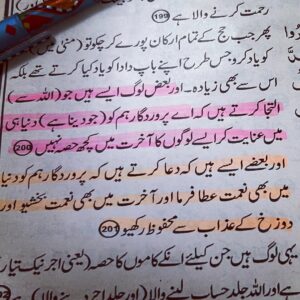 رحمت کرنے والا ہے (199)
پھر جب حج کے تمام ارکان پورے کرچکو تو (منیٰ میں)
کو یاد کرو جس طرح اپنے باپ دادا کو یاد کیا کرتے تھے بلکہ
اس سے بھی زیادہ۔ اور بعض لوگ ایسے ہیں جو (اللہ سے)
التجا کرتے ہیں کہ اے پروردگار ہم کو (جو دینا ہے) دنیا ہی
میں عنایت کر ایسے لوگوں کا آخرت میں کچھ حصہ نہیں (200)
اور بعضے ایسے ہیں کہ دعا کرتے ہیں کہ پروردگار ہم کو دنیا
میں بھی نعمت عطا فرما اور آخرت میں بھی نعمت بخشیو اور
دوزخ کے عذاب سے محفوظ رکھیو (201)
یہی لوگ ہیں جن کیلئے انکے کاموں کا حصہ (یعنی اجر نیک تیار
ہے اور اللہ جلد حساب لینے والا (اور جلد اجر دینے والا) ہے